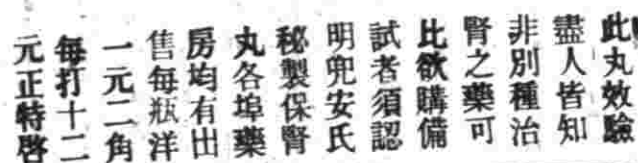 此丸效驗
盡人皆知
非別種治
腎之藥可
比欲購備
試者須認
明兜安氏
秘製保腎
丸各埠藥
房均有出
售每瓶洋
一元二角
每打十二
元正特啓